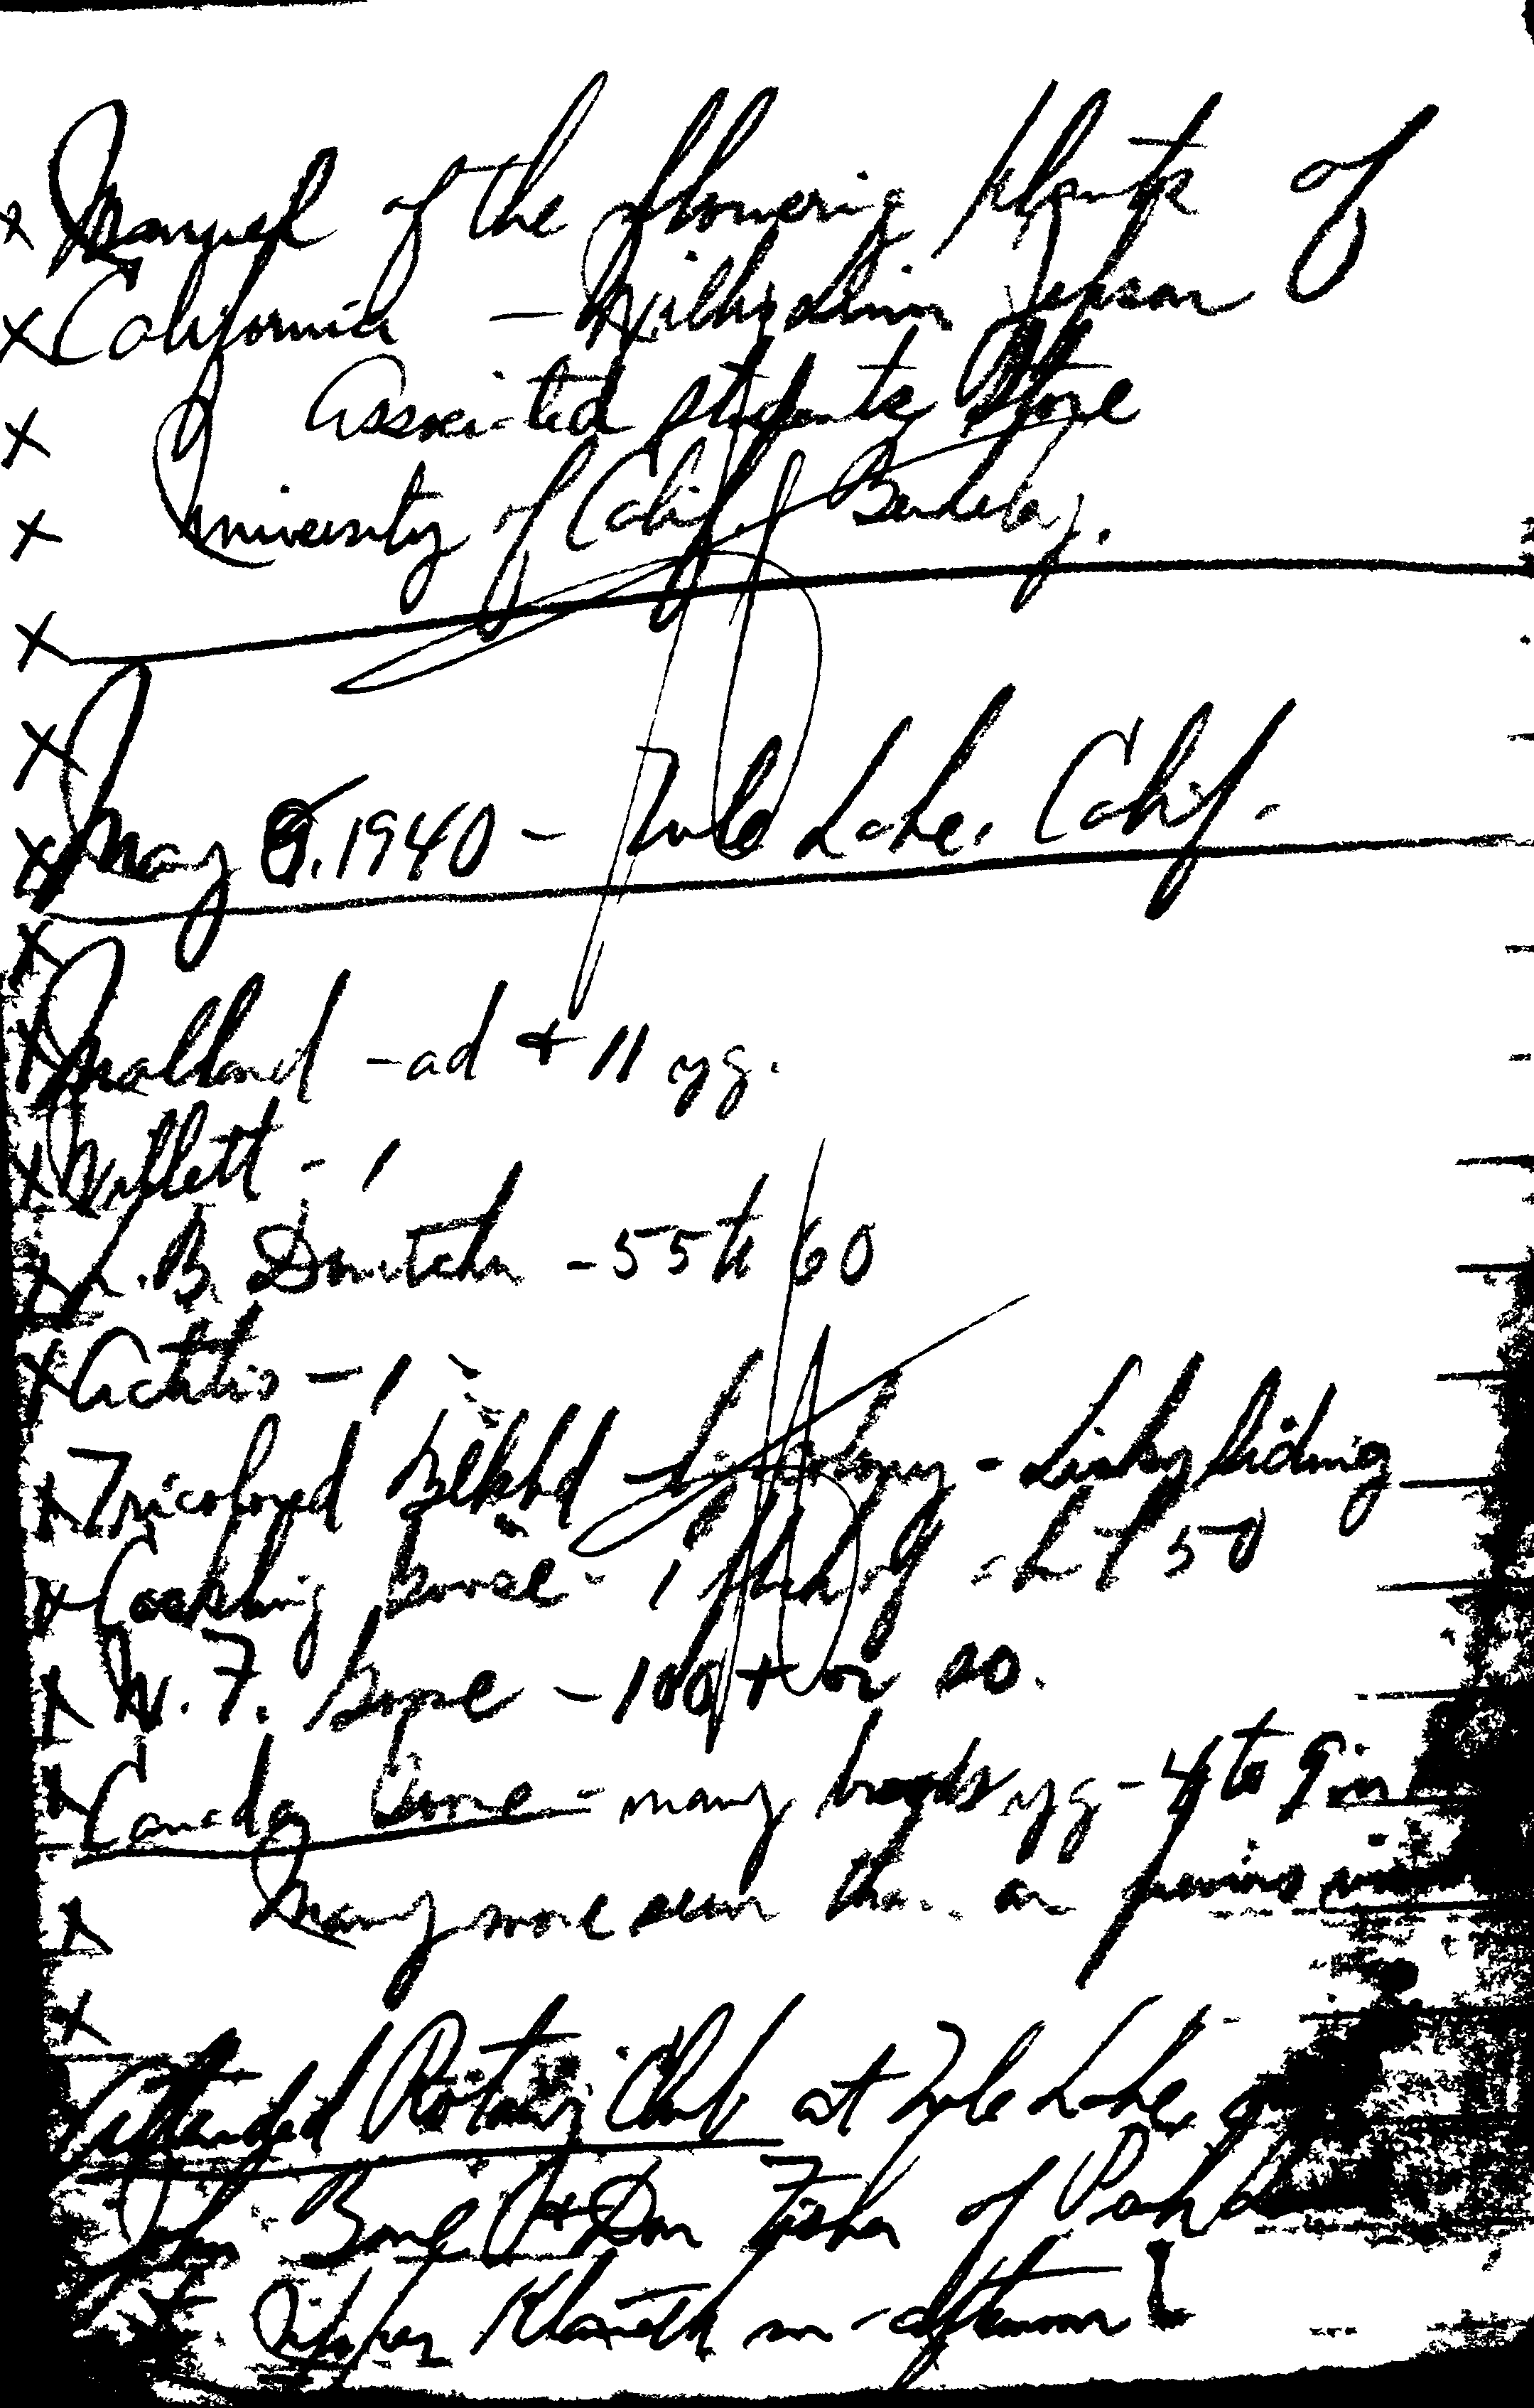 Manual of the flowering plants of
California - Willis Linn Jepson
Associated Students Store
University of Calif. Berkeley.
May 8. 1940 - Tule Lake, Calif.
Mallard - ad + 11 yg.
Willett - 1
L. B. Dowitcher - 55 to 60
Actitis - 1
Tricolored Blkbd - colony - Linkey Siding
Cackling Goose - 1 flock of 50
W. F. Goose - 100 + or so.
Canada Goose - many broods yg - 4 to 9 in
Many more seen than on previous
Attended Rotary Club at Tule Lake,
John Bone + Don Fisher of
Upper Klamath in afternoon